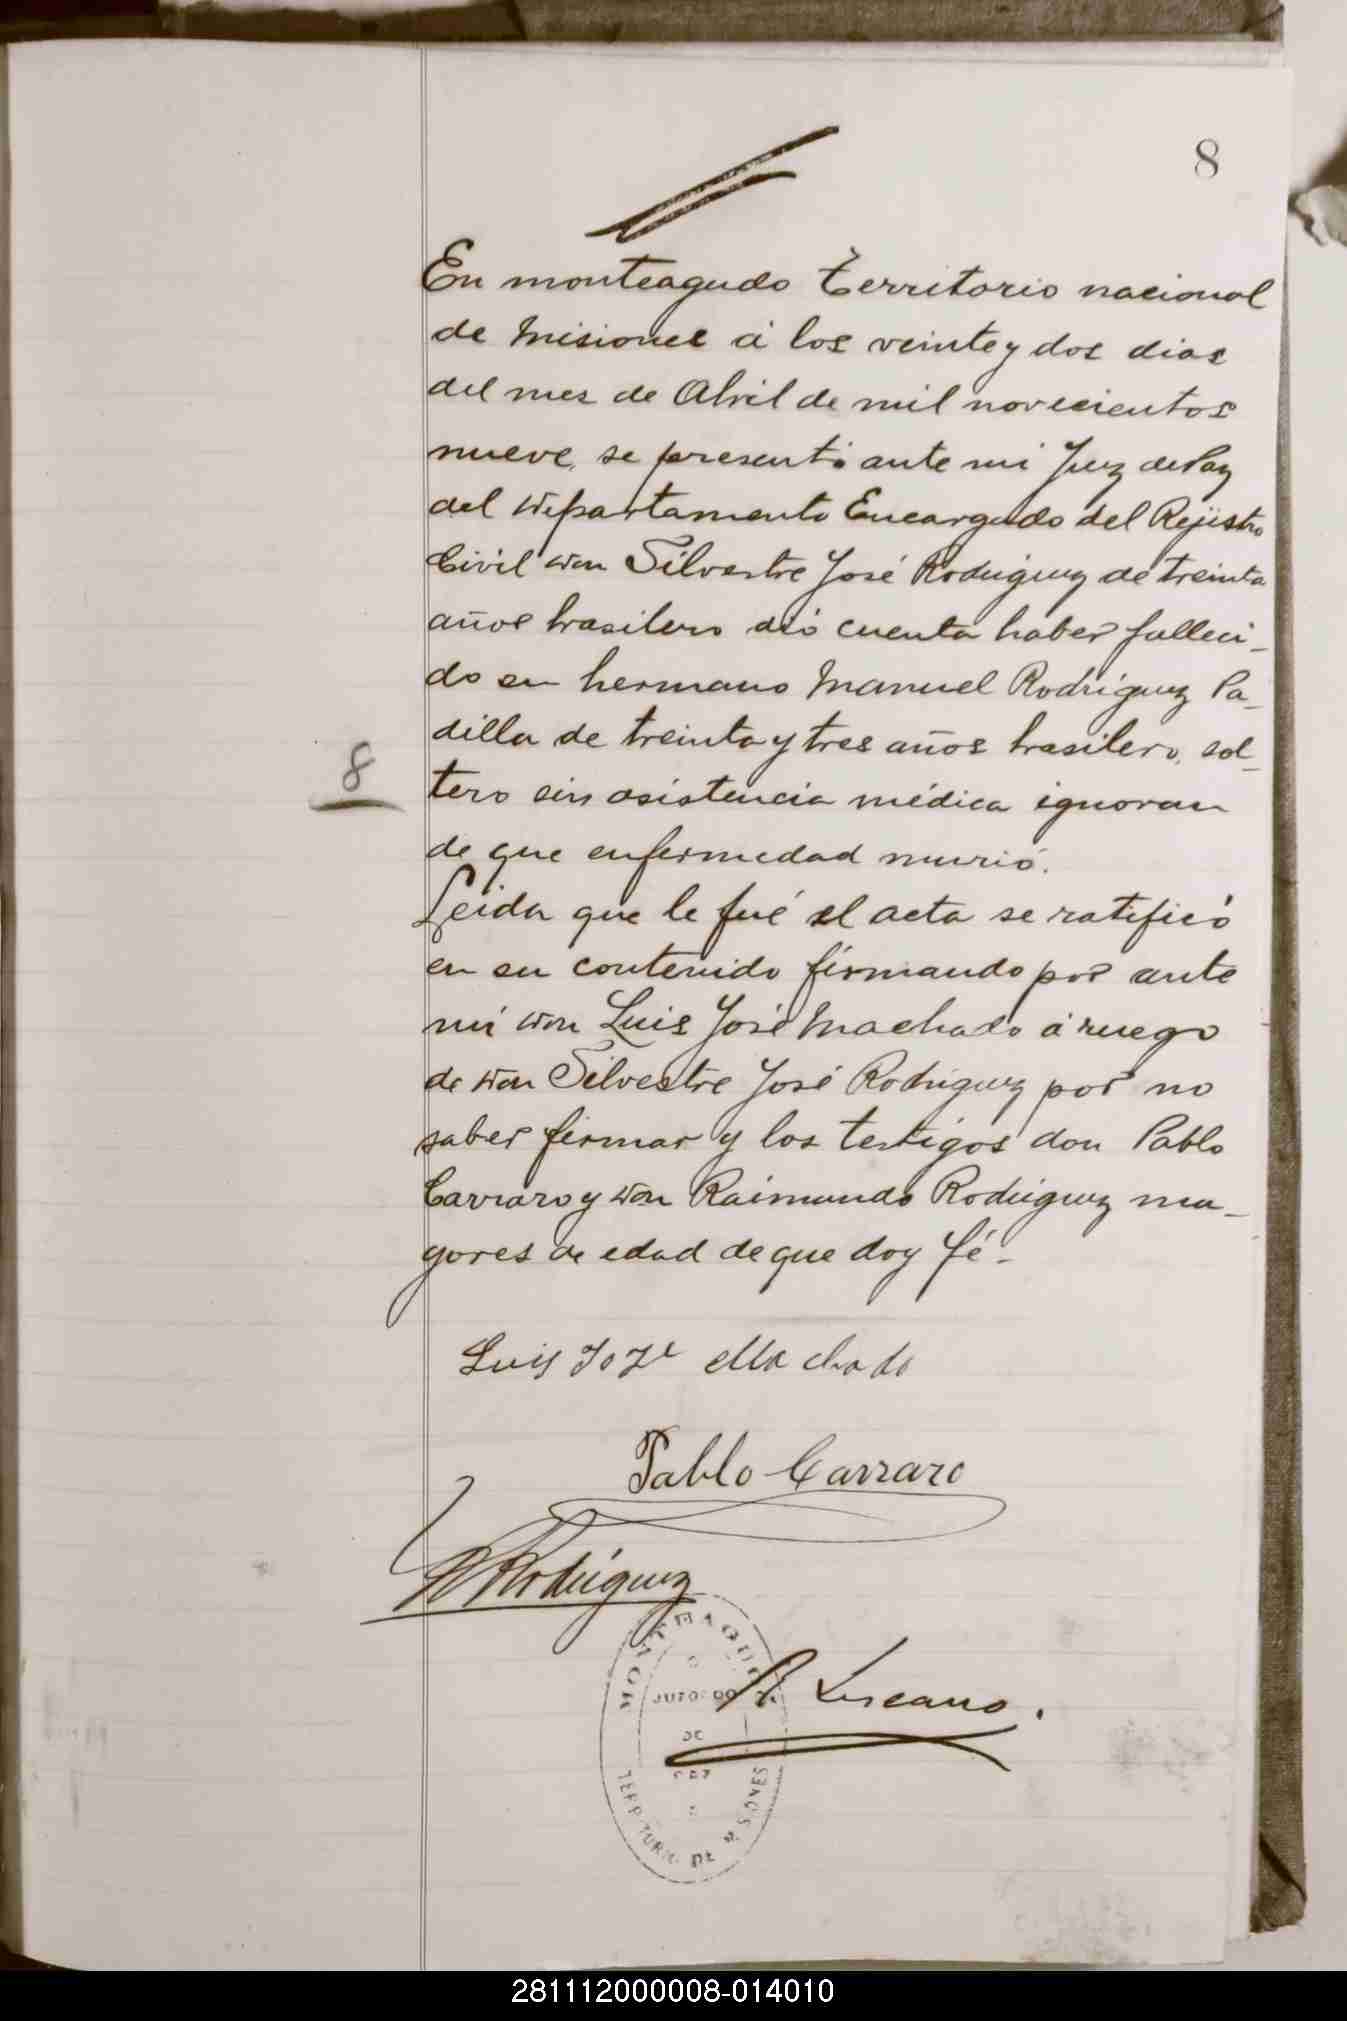 8
En monteagudo territorio nacional
de Misiones á los veinte y dos dias
del mes de Abril de mil novecientos
nueve, se presentó ante mi Juez de Paz
del Departamento Encargado del Rejistro
Civil Don Silvestre José Rodriguez de treinta
años brasilero dió cuenta haber falleci-
do su hermano Manuel Rodriguez Pa-
dilla de treinta y tres años brasilero, sol-
8
tero sin asistencia médica ignoran
de que enfermedad murió.
Leida que le fué el acta se ratificó
en su contenido firmando por ante
mi Don Luis José Machado á ruego
de Don Silvestre José Rodriguez por no
saber firmar y los testigos don Pablo
Carraro y Don Raimundo Rodriguez ma-
yores de edad de que doy fé-
Luis Joze Machado
Pablo Carraro
R Rodriguez
MONTEAGUDO
JUZGADO
DE
PAZ
TERRITORIO DE MISIONES
Lescano.
281112000008-014010